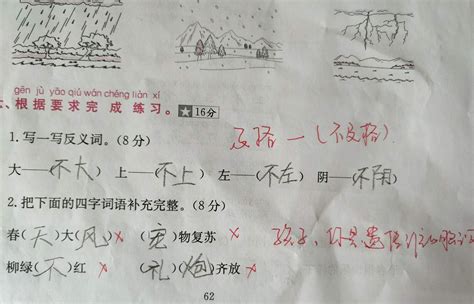 gēn jù yāo qiú wán chéng liàn xí
、根据要求完成练习。★16分
1.写一写反义词。(8分)
及格一(不及格)
大——(不大) 上——(不上) 左——(不左) 阴——(不阴)
2.把下面的四字词语补充完整。(8分)
春(天)大(风)× (宠)物复苏× 孩子、你是遗传
柳绿(不)红× (礼)(炮)齐放×
62